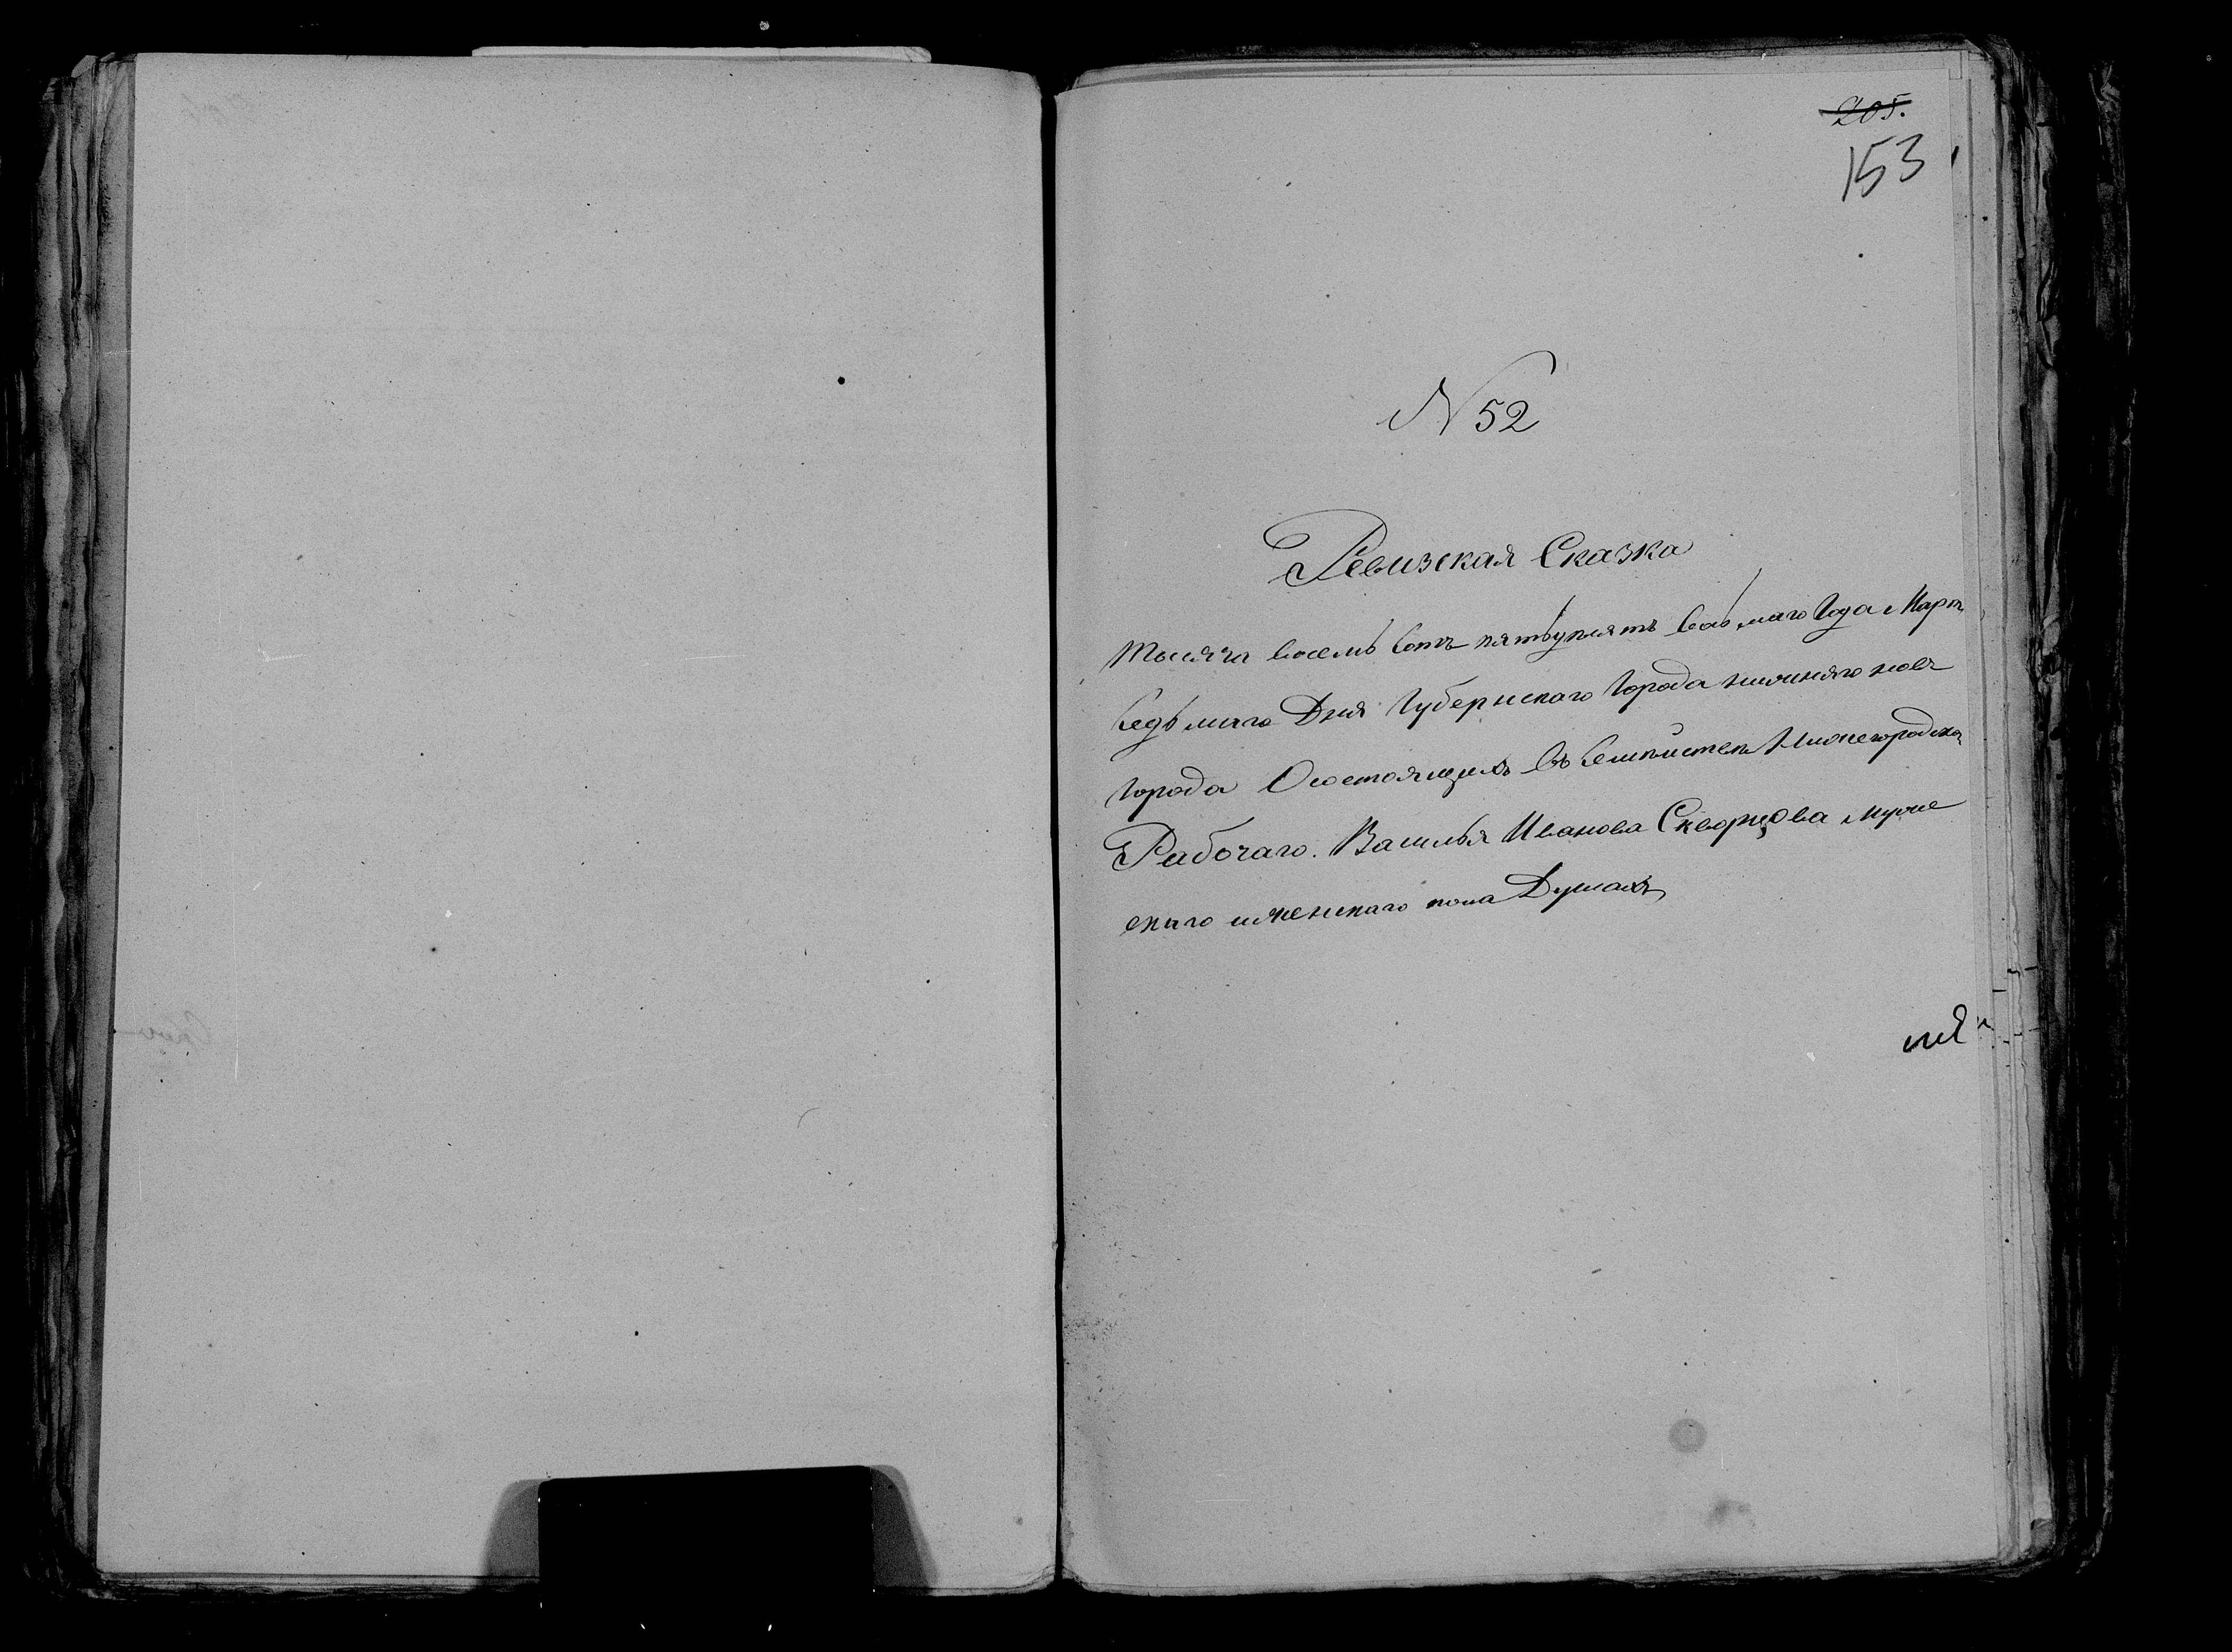 205.
153
N 52
Ревизская Сказка
Тысяча восемь сотъ пятьдесятъ года Мар
седьмаго Дня Губернскаго Города нижняго нов
города О состоящихъ въ Нижегородско
Рабочаго. Василья Иванова Скворцова муже
скаго и женскаго пола Душахъ